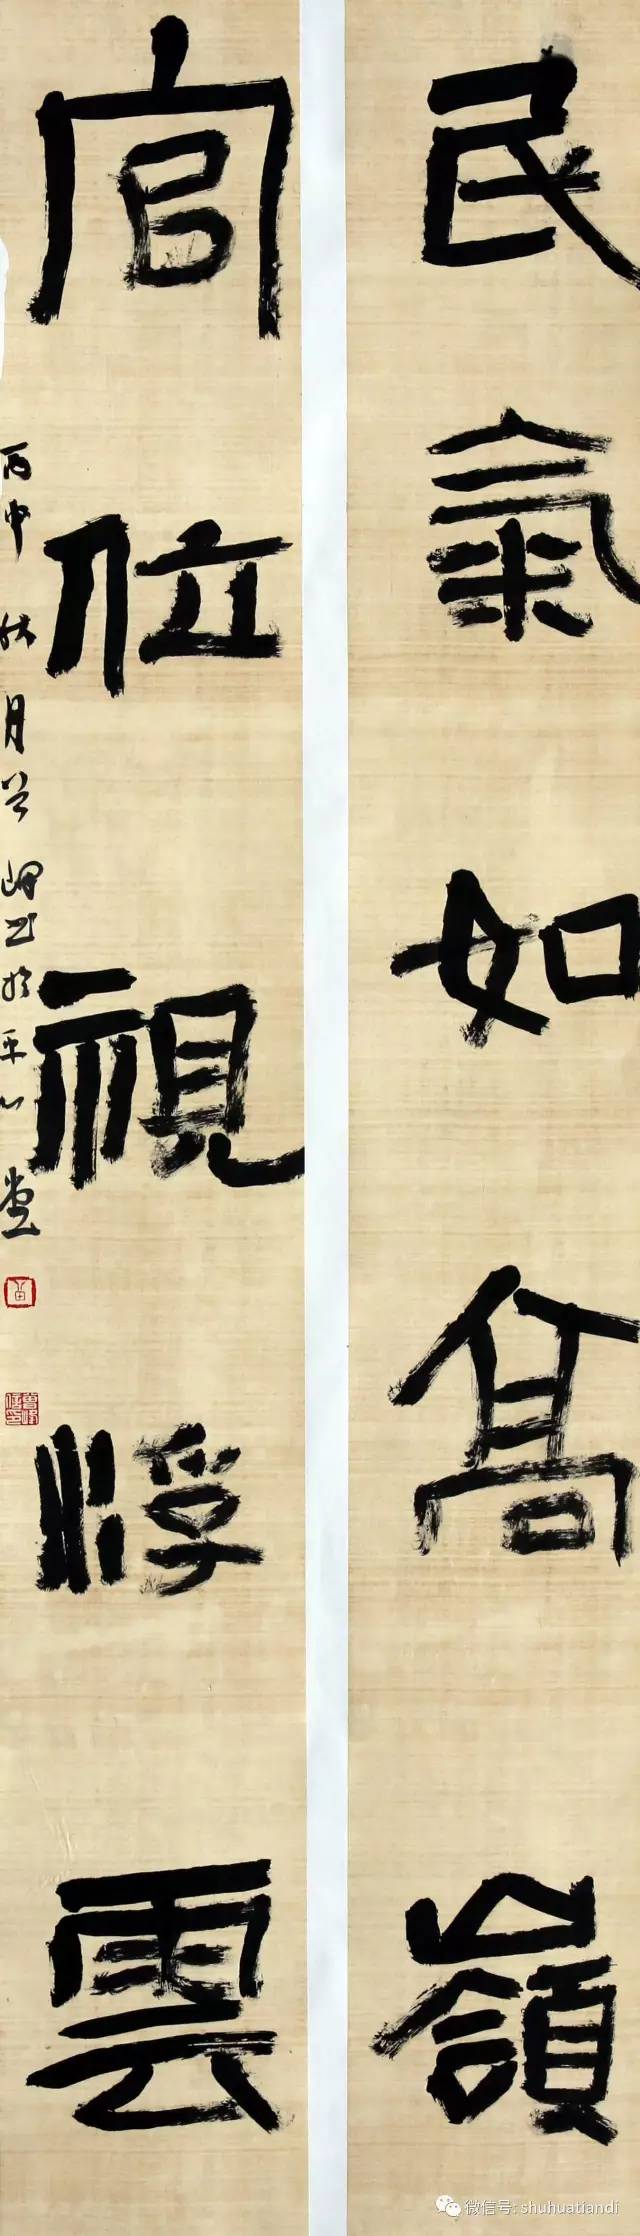 民氣如高嶺
官位視浮雲
丙申秋月曾峒書於平心堂
微信号: shuhuatiandi